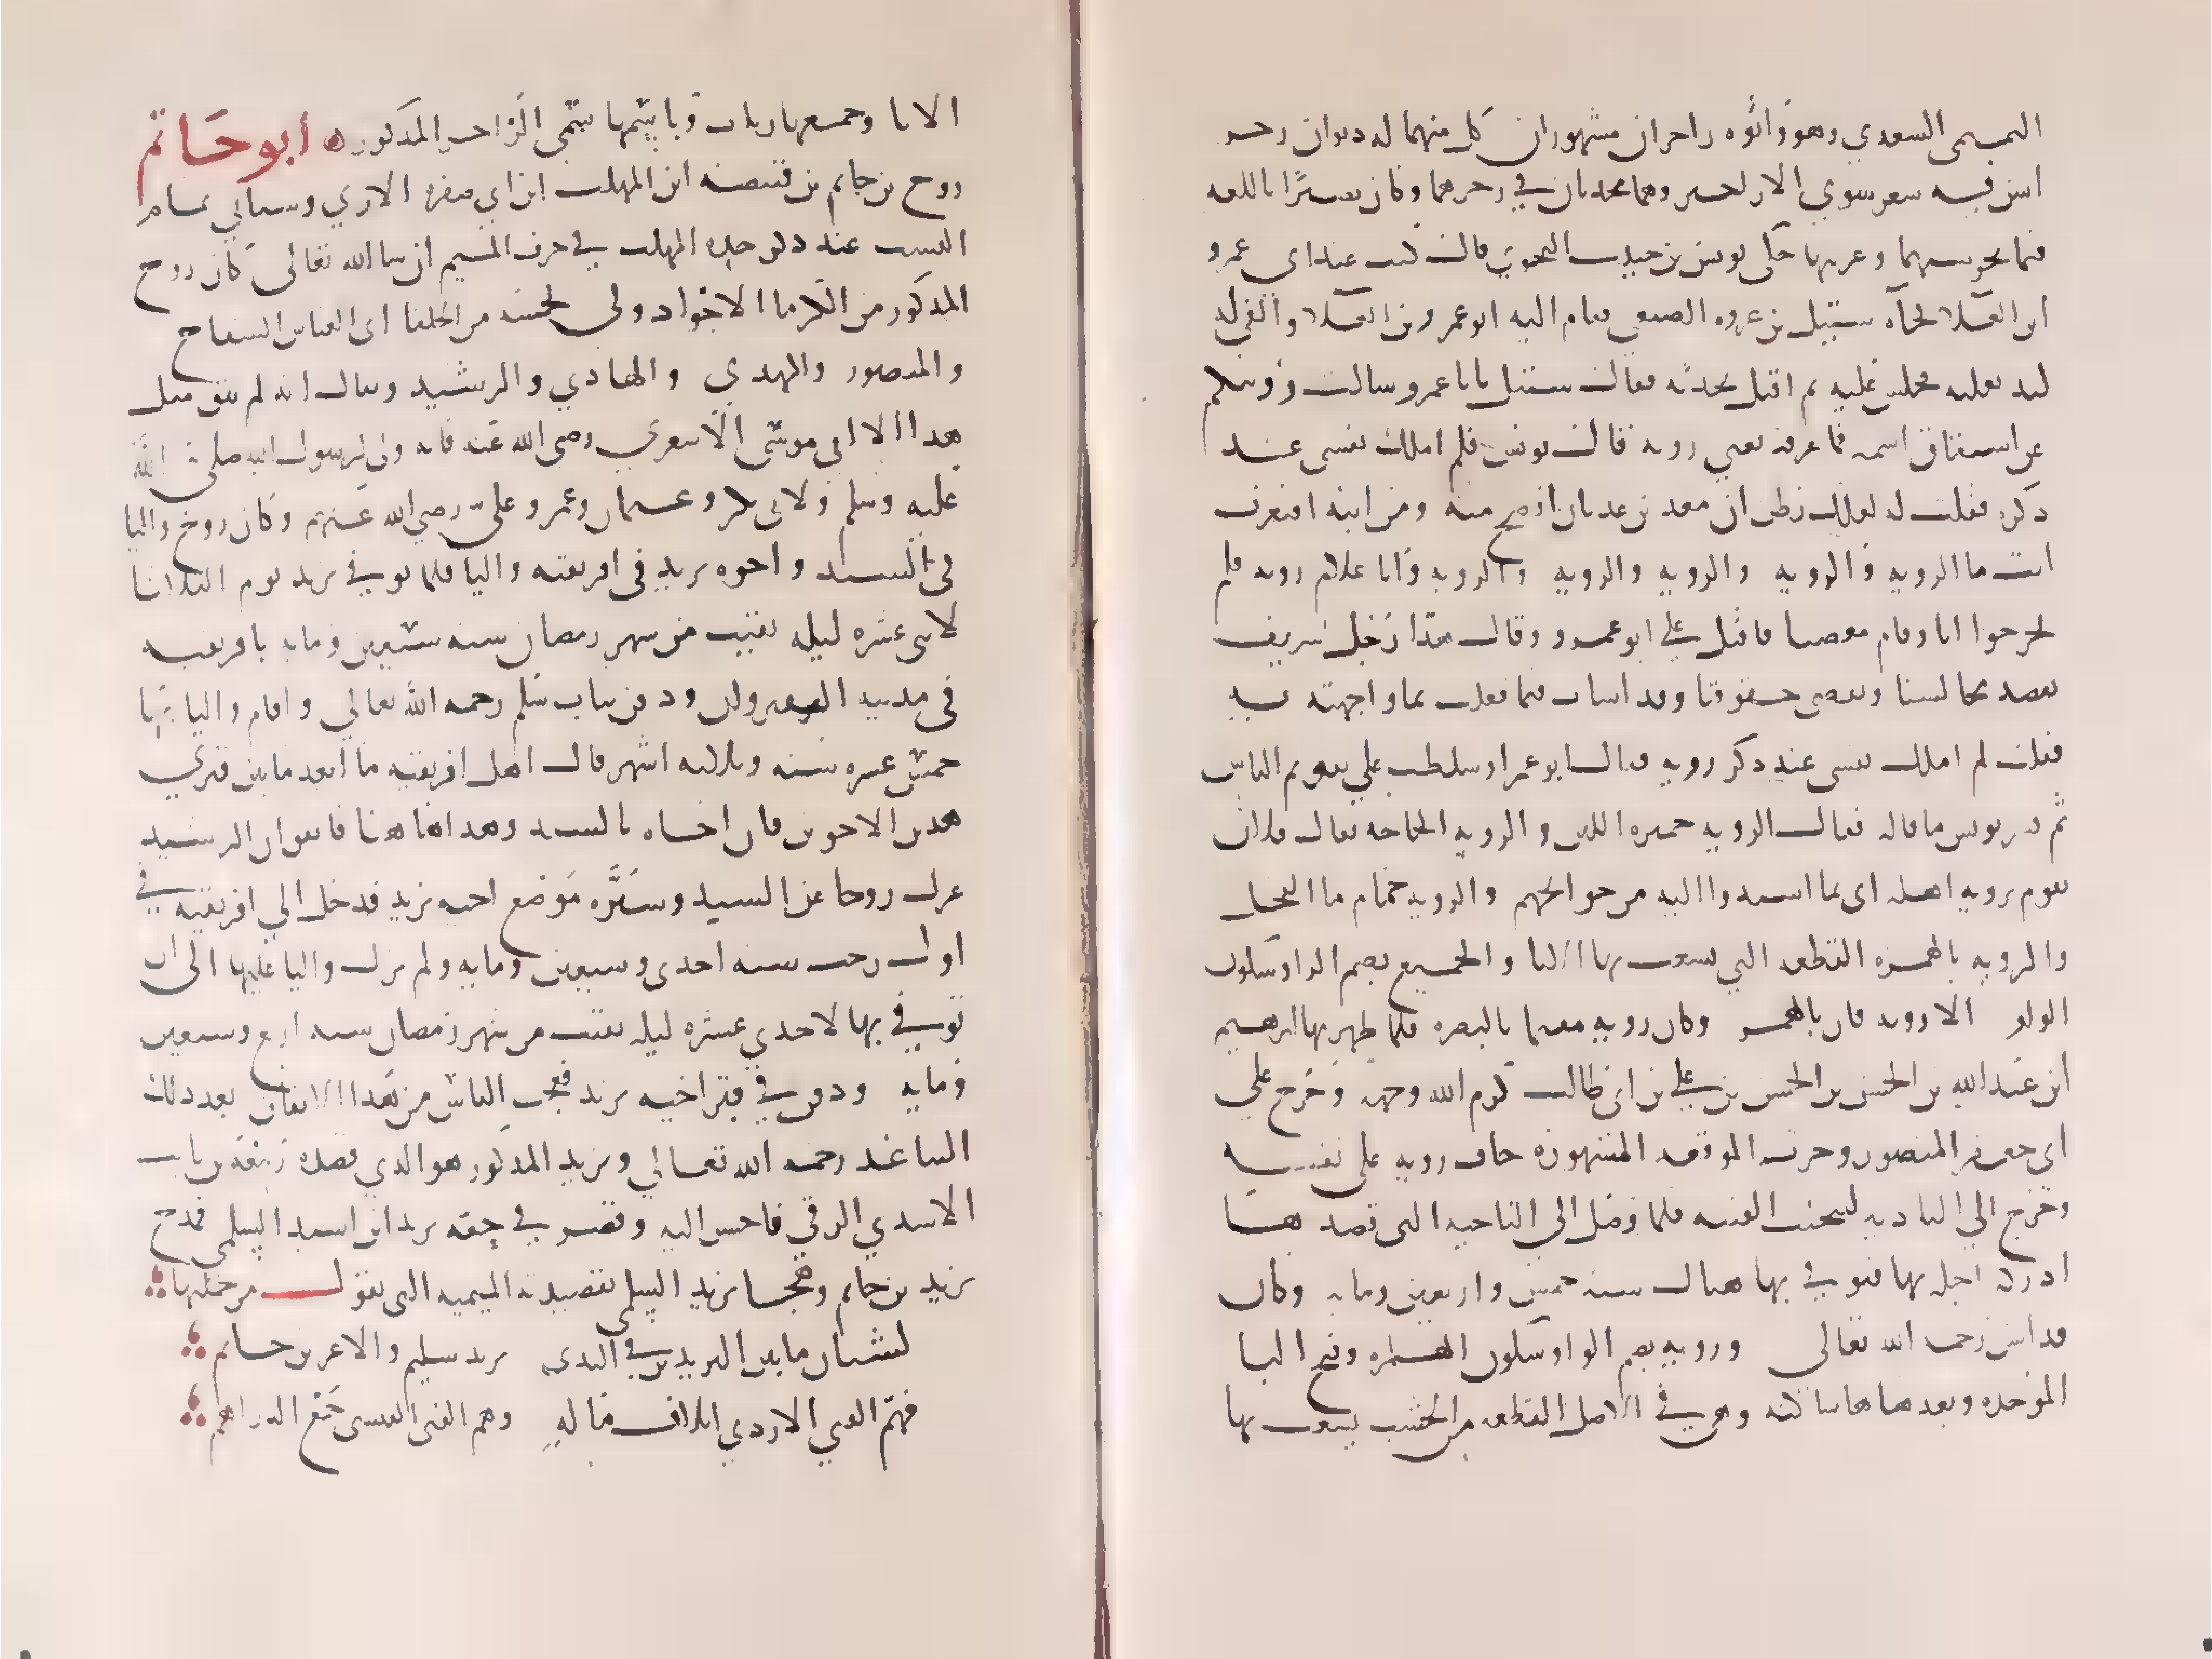 التميمي السعدي وهو وأبوه راجزان مشهوران كل منهما له ديوان رجز
ليس فيه شعر سوى الاراجيز وهما مجيدان في رجزهما وكان بصيرًا باللغه
قيما بحوشيها وغريبها حكى يونس بن حبيب النحوي قال كنت عند ابي عمرو
ابن العلا فجآه شبيل بن عروه الضبعي فقام اليه ابو عمرو بن العلا والقى له
لبد بغلته فجلس عليه ثم اقبل يحدثه فقال شبيل يابا عمرو سالت روبتكم
عن اشتقاق اسمه فما عرفه يعني روبة قال يونس فلم املك نفسي عند
ذكره فقلت له لعلك تظن ان معد بن عدنان افصح منه ومن ابيه افتعرف
انت ما الروبه والروبه والروبه والروبه والروبه وانا غلام روبه فلم
يحر جوابا وقام مغضبا فاقبل علي ابو عمرو وقال هذا رجل شريف
يقصد مجالسنا ويقضي حقوقنا وقد اسات فيما فعلت مما واجهته به
فقلت لم املك نفسي عند ذكر روبه فقال ابو عمر اوسلطت علي تقويم الناس
ثم فسر يونس ما قاله فقال الروبه خميره اللبن والروبه الحاجه يقال فلان
يقوم بروبه اهله اى بما اسندوا اليه من حوائجهم والروبه جمام ما الفحل
والروبه بالهمزه القطعه التي يشعب بها الانا والجميع بضم الرا وسكون
الواو الا روبه فان بالهمز وكان روبه مقيما بالبصره فلما ظهر بها ابرهيم
ابن عبد الله بن الحسن بن الحسن بن علي بن ابي طالب كرم الله وجهه وخرج علي
ابي جعفر المنصور وجرت الموقعه المشهوره خاف روبه على نفسه
وخرج الي الباديه ليتجنب الفتنه فلما وصل الي الناحيه التى قصدها
ادركه اجله بها فتوفي بها هناك سنه خمس واربعين ومايه وكان
قد اسن رحمه الله تعالى وروبه بضم الرا وسكون الهمزه وفتح البا
الموحده وبعدها ها ساكنه وهي في الاصل القطعه من الخشب يشعب بها
الانا وجمعها رياب وباسمها سمى الراجز المذكور ه أبو حَاتم
روح بن حاتم بن قبيصه ابن المهلب ابن ابي صفره الازدي وسياتي تمام
النسب عند ذكر جده المهلب في حرف الميم ان شا الله تعالى كان روح
المذكور من الكرما الاجواد وولي لخمسه من الخلفا ابى العباس السفاح
والمنصور والمهدي والهادي والرشيد ويقال انه لم يتفق مثل
هذا الا لابى موسى الاشعري رضى الله عنه فانه ولي لرسول الله صلى الله
عليه وسلم ولابى بكر وعثمان وعمر وعلي رضي الله عنهم وكان روح واليا
فى السند واخوه يزيد فى افريقيه واليا فلما توفي يزيد يوم الثلاثا
لاثنى عشره ليله بقيت من شهر رمضان سنه سبعين ومايه بافريقيه
فى مدينه القيروان ودفن بباب سلم رحمه الله تعالي واقام واليا بها
خمس عشره سنه وثلاثه اشهر قال اهل افريقيه ما ابعد ما بين قبري
هذين الاخوين فان اخاه بالسند وهذا هاهنا فاتفق ان الرشيد
عزل روحا عن السند وسيَّره مَوضع اخيه يزيد فدخل الي افريقيه في
اول رجب سنه احدى وسبعين ومايه ولم يزل واليا عليها الى ان
توفي بها لاحدي عشره ليله بقيت من شهر رمضان سنه اربع وسبعين
ومايه ودفن في قبر اخيه يزيد فعجب الناس من هذا الاتفاق بعد ذلك
التباعد رحمه الله تعالي ويزيد المذكور هو الذي قصده ربيعه بن ثابت
الاسدي الرقي فاحسن اليه وقصر في حقه يزيد ابن اسيد السلمي فمدح
يزيد بن حاتم وهجا يزيد السلمي بقصيدته الميميه التى يقول من جملتها
لشتان ما بين اليزيدين في الندى يزيد سليم والاغر بن حاتم
فهمّ الفتى الازدي اتلاف ماله وهم الفتى القيسى جَمْع الدراهم